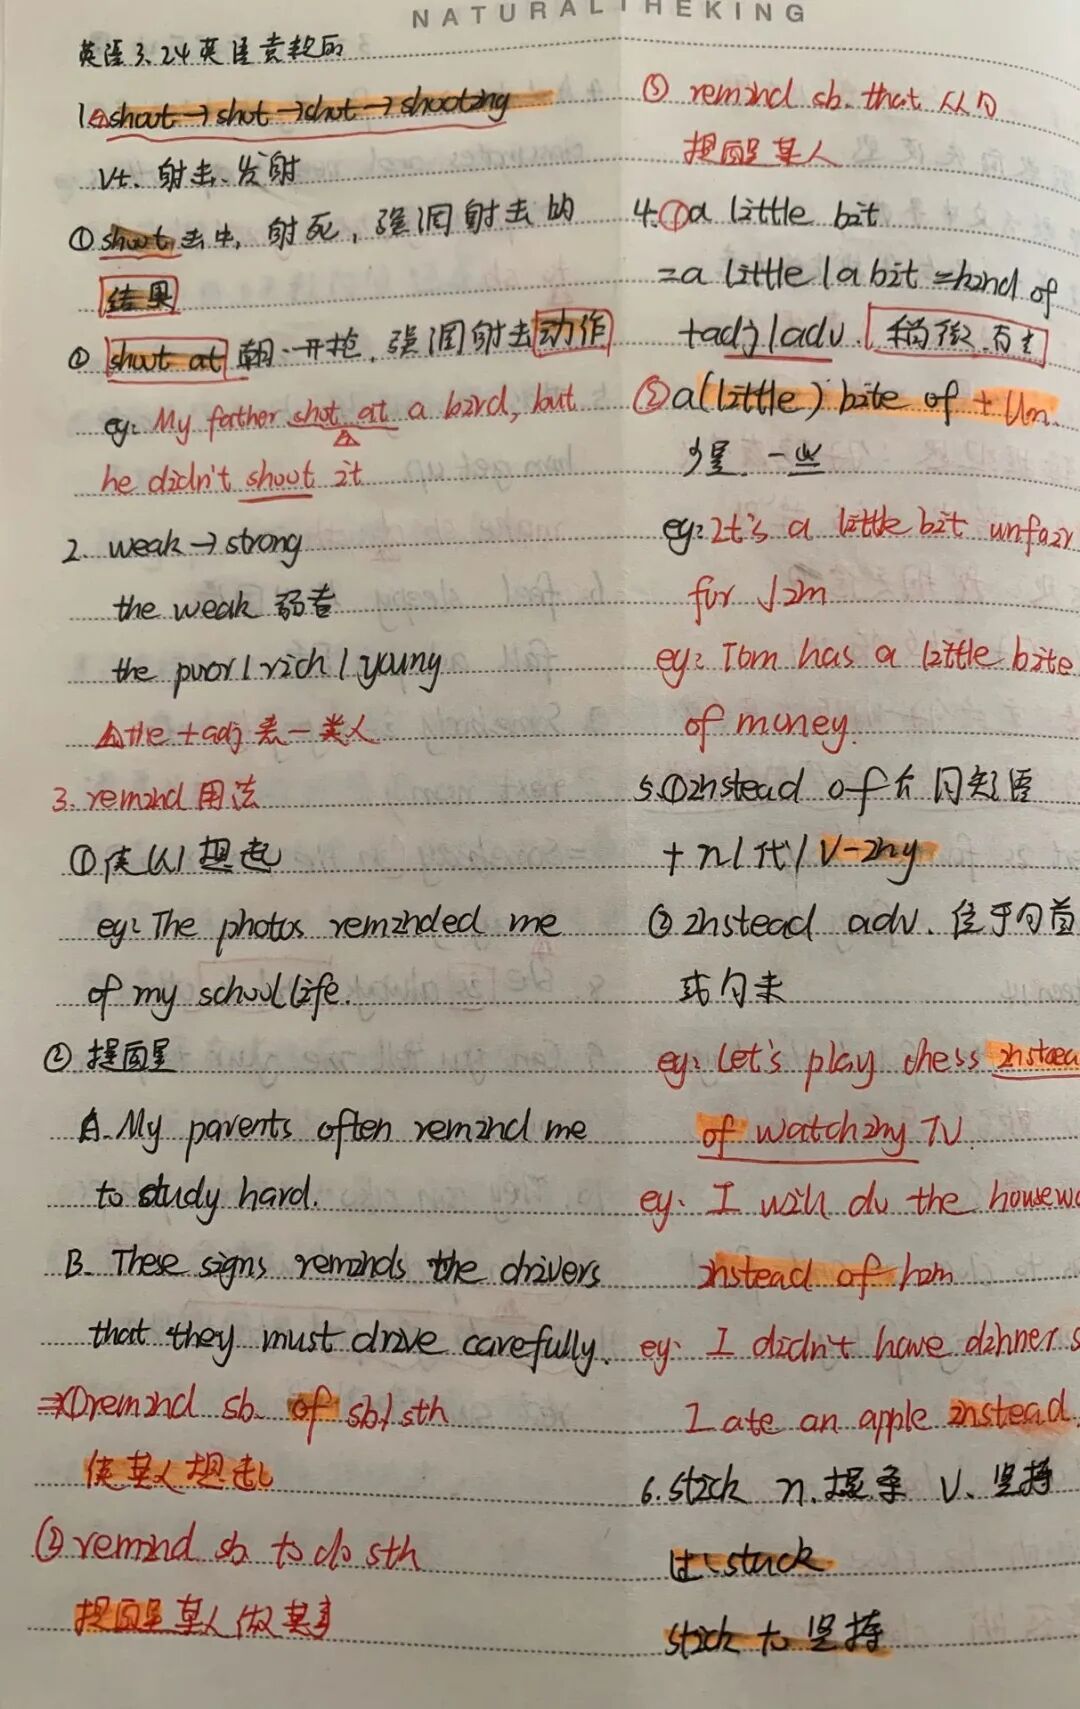 NATURALTHEKING
英语3.24英语素养后
1.shoot→shot→shot→shooting
Vt. 射击、发射
①shoot 击中, 射死, 强调射击的
结果
②shoot at 朝…开枪, 强调射击动作
eg: My father shot at a bird, but
he didn't shoot it
2. weak→strong
the weak 弱者
the poor/rich/young
the+adj 表一类人
3. remind 用法
①使(人)想起
eg: The photos reminded me
of my school life.
② 提醒
A. My parents often remind me
to study hard.
B. These signs reminds the drivers
that they must drive carefully.
⇒①remind sb. of sb/sth
使某人想起
②remind sb to do sth
提醒某人做某事
③ remind sb. that 从句
提醒某人
4.①a little bit
=a little/a bit =kind of
+adj/adv. 稍微.有点
②a(little) bite of + Un.
少量.一些
eg: It's a little bit unfair
for Jim
eg: Tom has a little bite
of money.
5.①instead of 介词短语
+n/代/V-ing
②instead adv. 位于句首
或句末
eg: Let's play chess instea
of watching TV
eg. I will do the housewo
instead of him
eg. I didn't have dinner s
I ate an apple instead.
6.stick n.棍条 V.坚持
过: stuck
stick to 坚持